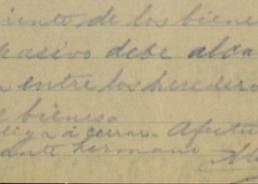 iento de los biene
pasivo debe alca
entre los heredero
e bienes.
liga á cerrar. Afectu
hermano